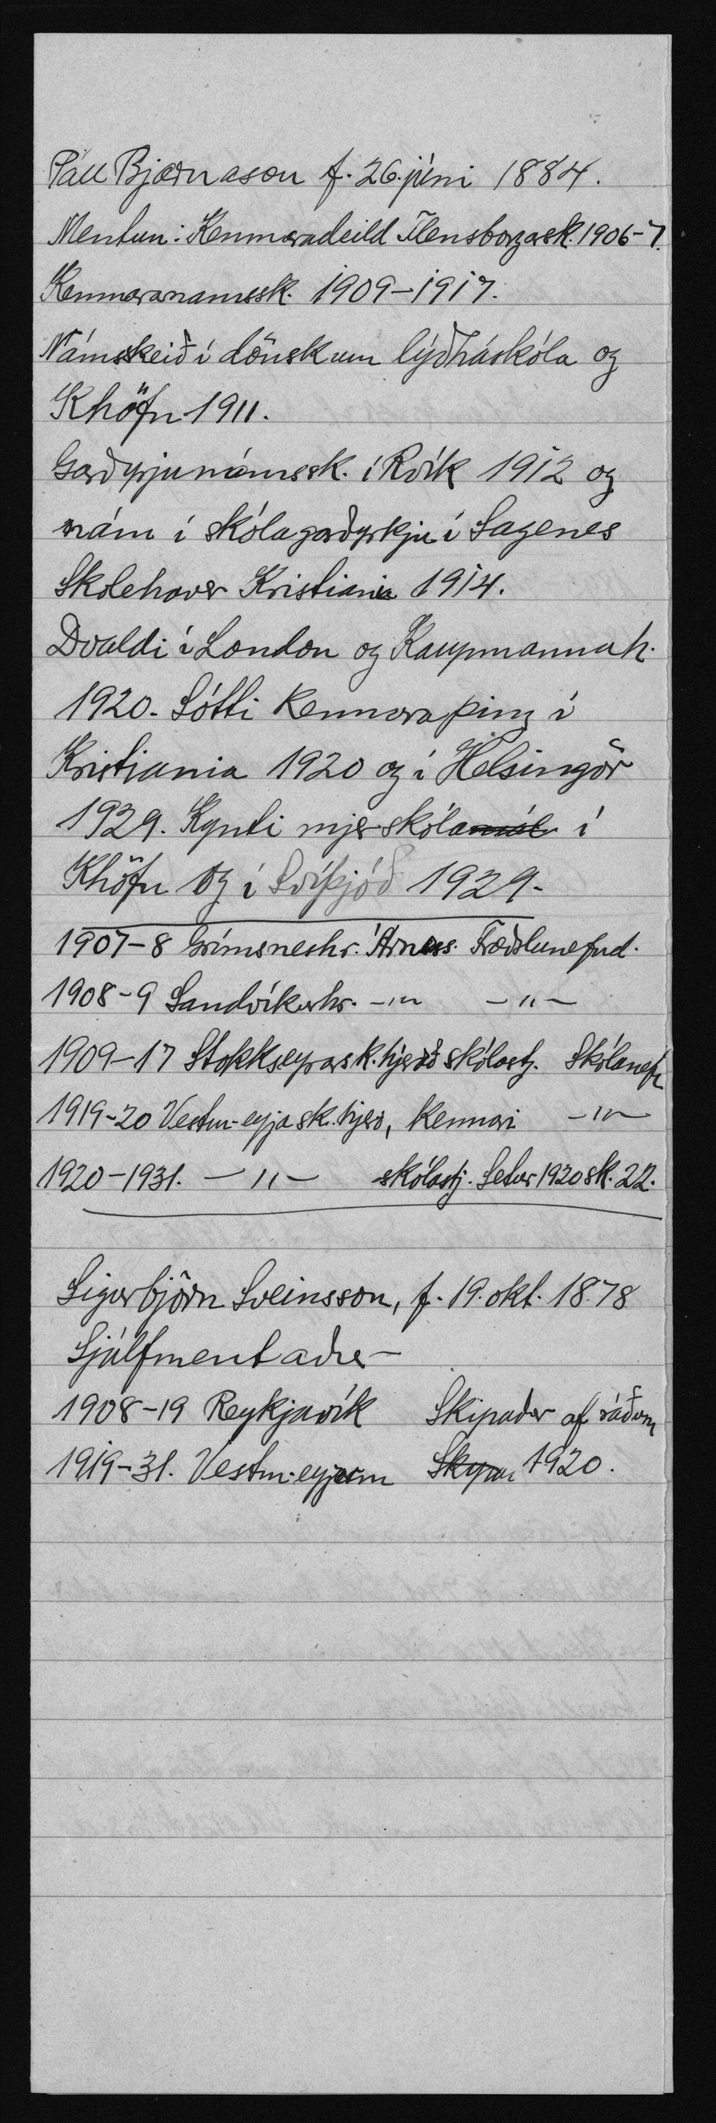 Páll Bjarnason f. 26. júní 1884.
Mentun: Kennaradeild Flensborgarsk. 1906-7.
Kennaranámssk. 1909-1917.
Námsskeið í dönskum lýðháskóla og
Khöfn 1911.
Garðyrjunámssk. í Rvík 1912 og
nám í skólagarðyrkju í Sagenes
Skolehaver Kristiania 1914.
Dvaldi í London og Kaupmannah.
1920. Sótti Kennaraþing í
Kristiania 1920 og í Helsingör
1929. Kynti mjer skólamál í
Khöfn og í Svíþjóð 1929.
1907-8 Grímsneshr. Árness. Fræðslunefnd.
1908-9 Sandvíkurhr. -"- -"-
1909-17 Stokkseyrarsk.hjerað skólastj. Skólanefn
1919-20 Vestm-eyjask.hjer, Kennari -"-
1920-1931. -"- skólastj. Setur 1920 sk. 22.
Sigurbjörn Sveinsson, f. 19. okt. 1878
Sjálfmentaður
1908-19 Reykjavík Skipaður af ráðum
1919-31. Vestm-eyjum Skipa 1920.